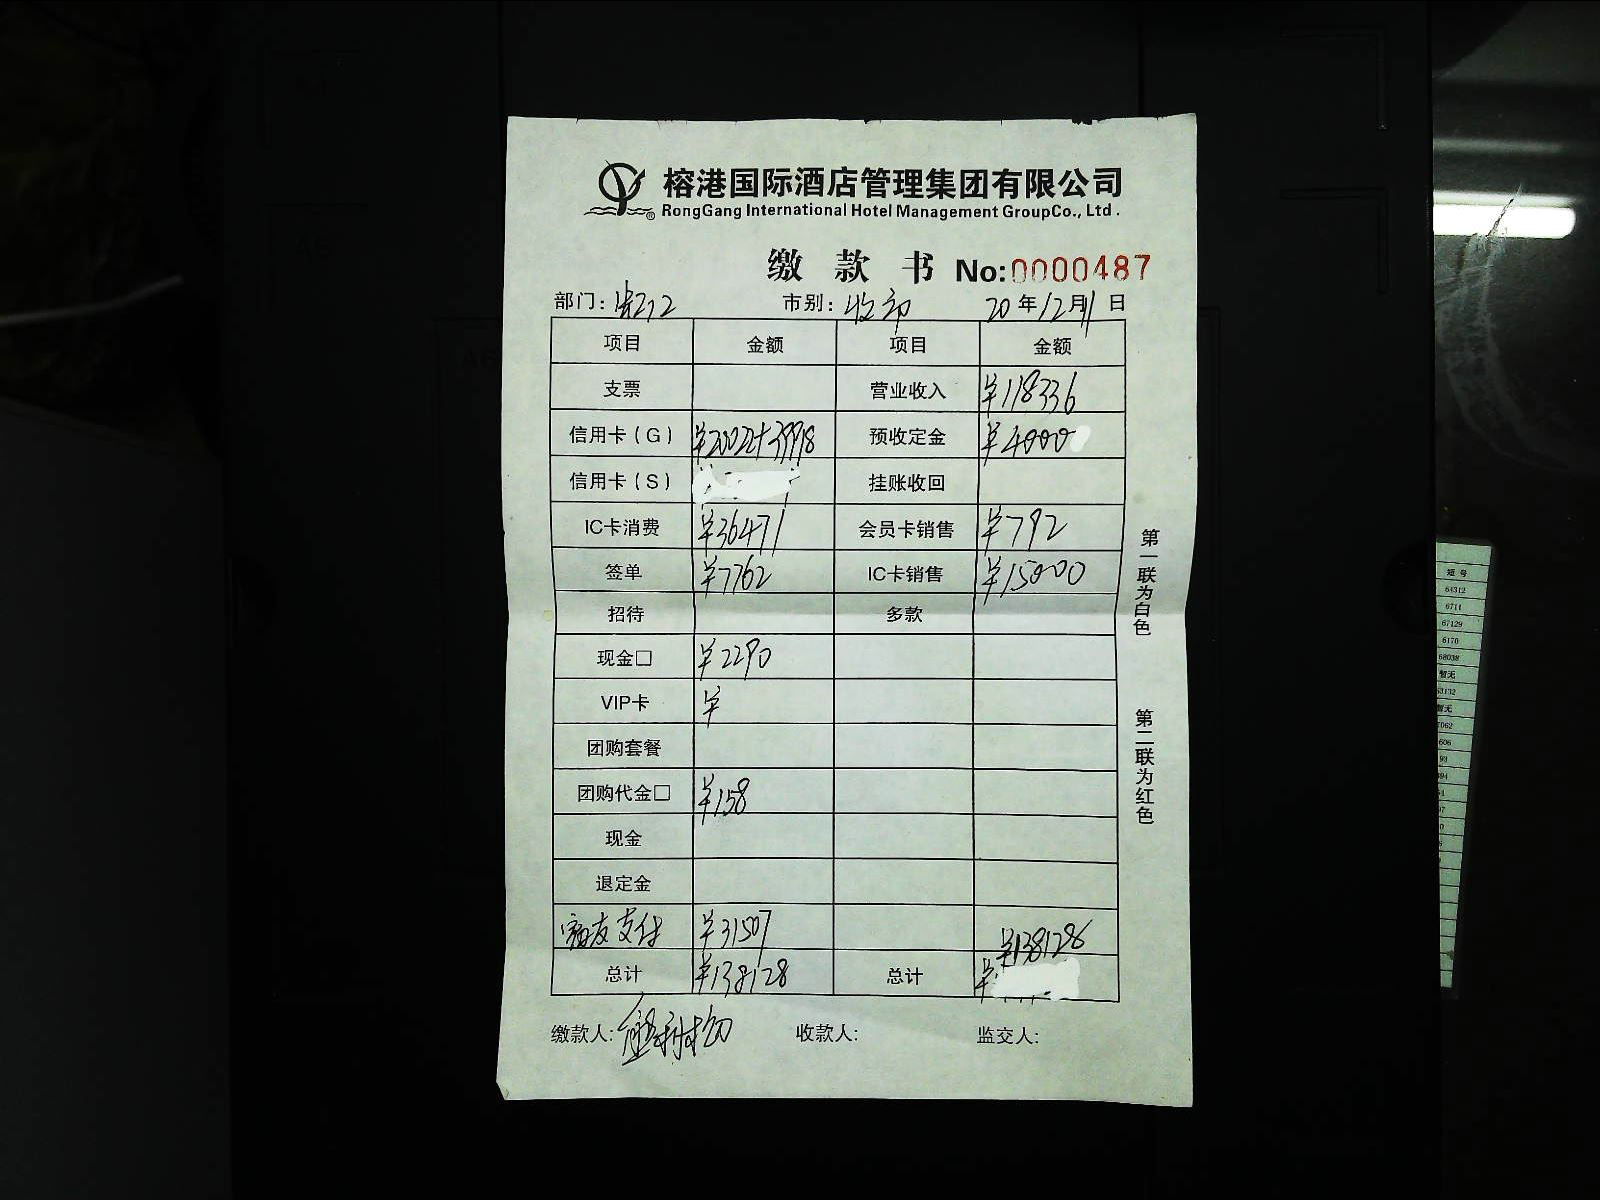 榕港国际酒店管理集团有限公司
RongGang International Hotel Management GroupCo., Ltd.
缴款书 No:0000487
部门: 市别: 收印 20年12月11日
项目 金额 项目 金额
支票 营业收入 ¥118336
信用卡(G) ¥20022+39918 预收定金 ¥4000
信用卡(S) 挂账收回
IC卡消费 ¥36471 会员卡销售 ¥792
签单 ¥7762 IC卡销售 ¥15000
招待 多款
现金□ ¥2290
VIP卡 ¥
团购套餐
团购代金□ ¥158
现金
退定金
支付 ¥31507 ¥138128
总计 ¥138128 总计 ¥
缴款人: 收款人: 监交人:
第一联为白色
第二联为红色
短号
64312
6711
67129
6170
68038
暂无
暂无